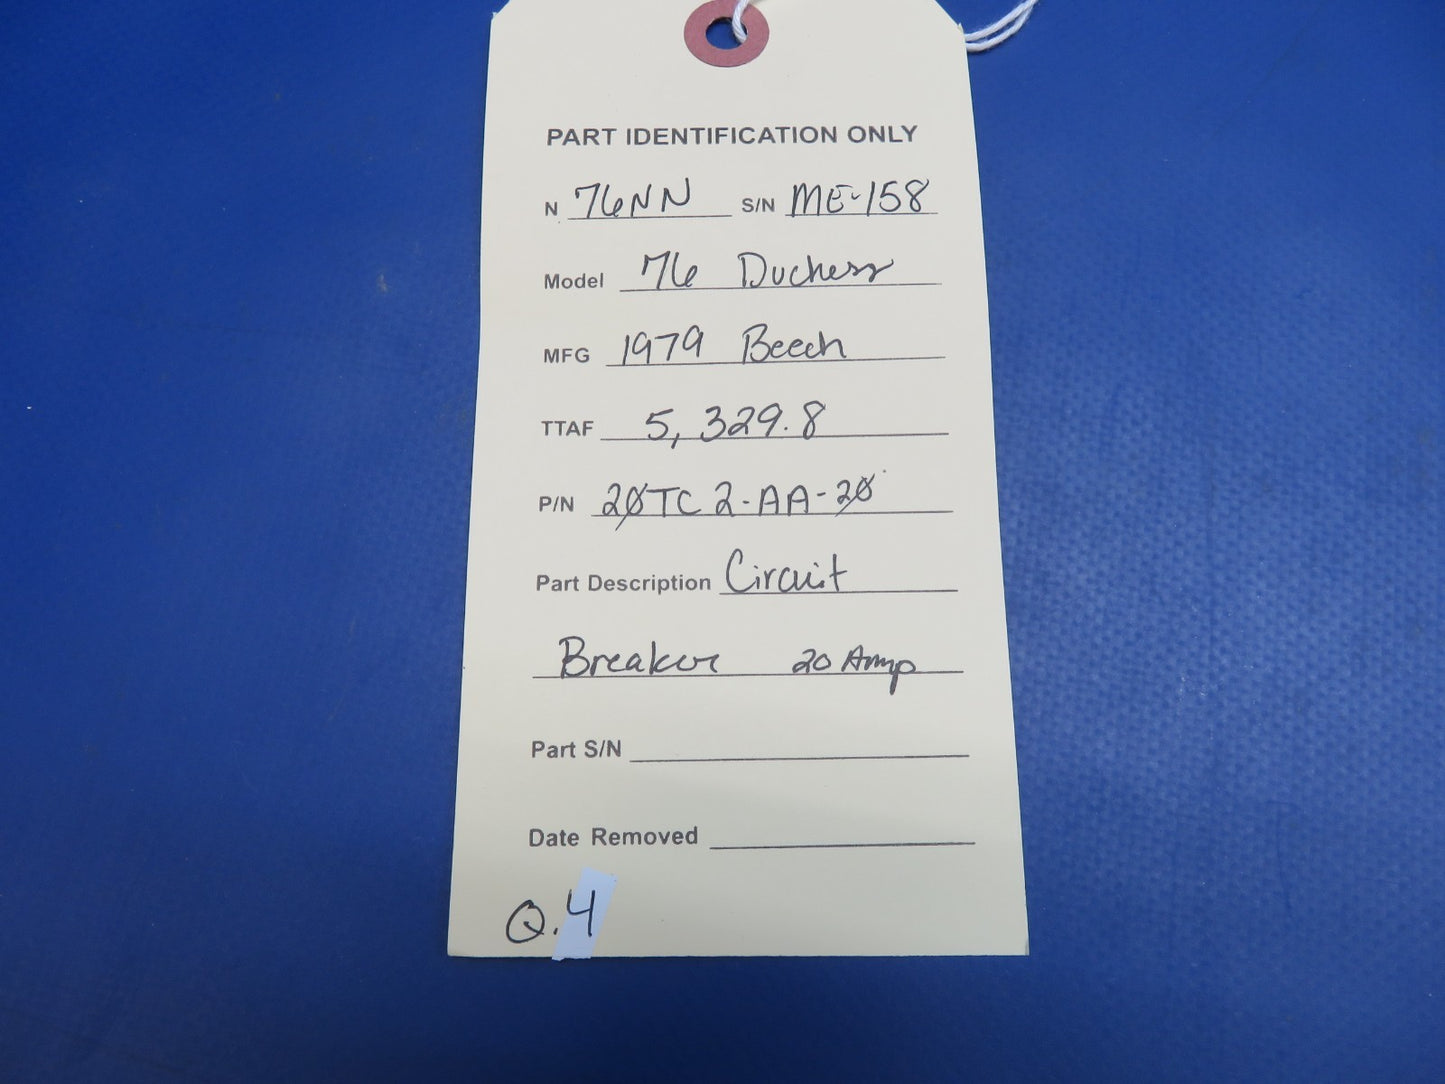 PART IDENTIFICATION ONLY
N 76NN S/N ME-158
Model 76 Duchess
MFG 1979 Beech
TTAF 5,329.8
P/N 2ØTC2-AA-2Ø
Part Description Circuit
Breaker 20 Amp
Part S/N
Date Removed
Q.4